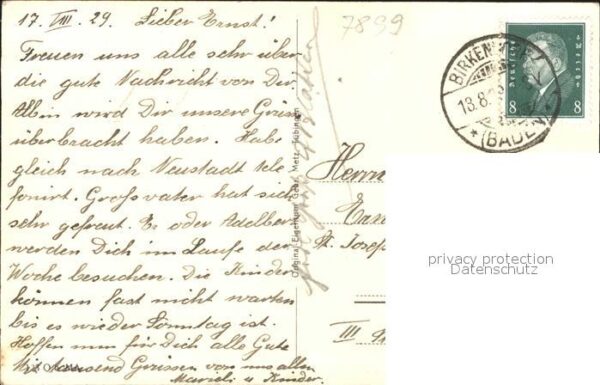 17. VIII. 29. Lieber Ernst!
7899
Freuen uns alle sehr über
die gute Nachricht von Dir.
Albin wird Dir unsere Grüsse
überbracht haben. Habe
gleich nach Neustadt tele
foniert. Grossvater hat sich
sehr gefreut. Er oder Adelbert
werden Dich im Laufe der
Woche besuchen. Die Kinder
können fast nicht warten
bis es wieder Sonntag ist.
Hoffen nun für Dich alle Gute
Mit tausend Grüssen von uns allen
Marieli u Kinder.
Original-Eigentum Gebr. Metz, Tübingen
Herrn
St. Josef
III
BIRKENDORF
18.8.
(BADEN)
Deutsches Reich
8 8
privacy protection
Datenschutz